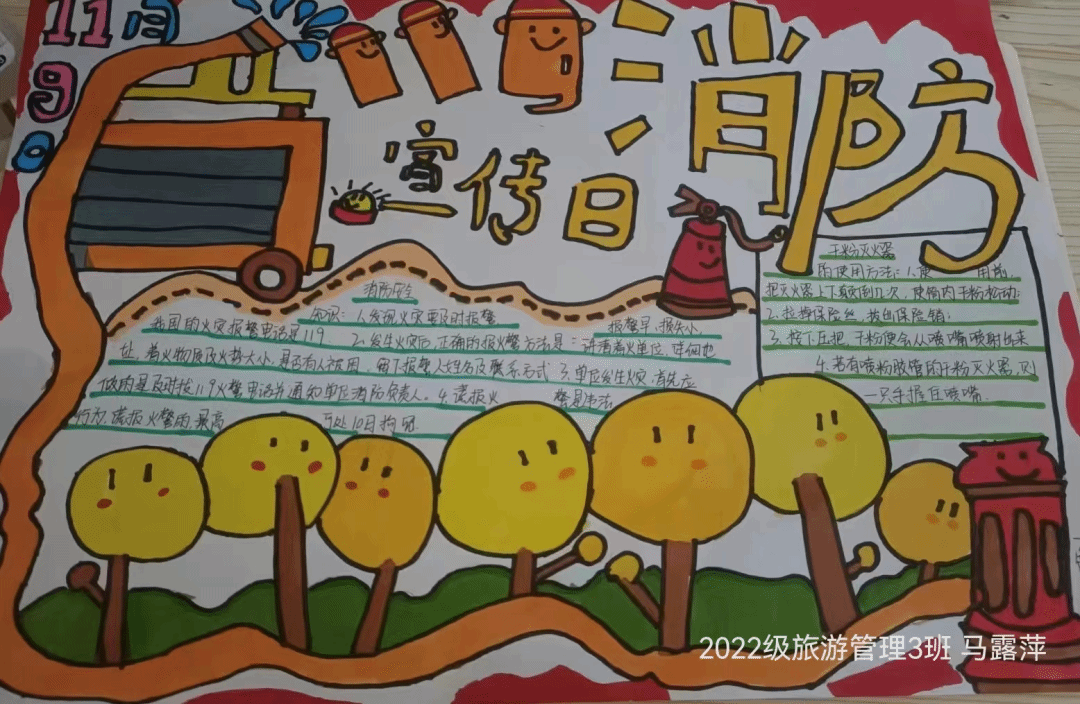 11月
9日
119
消防
宣传日
消防安全
知识：1.发现火灾要及时报警
我国的火灾报警电话是119 2.发生火灾后，正确的报火警方法是：讲清着火单位，详细地
报警早，损失小，
址，着火物质及火势大小，是否有人被困，留下报警人姓名及联系方式 3.单位发生火灾，首先应
做的是及时拨119火警电话并通知单位消防负责人。4.谎报火
警是违法
行为，谎报火警的，最高
可处10日拘留
干粉灭火器
的使用方法：1.使 用前，
把灭火器上下颠倒几次，使筒内干粉松动；
2.拉掉保险丝，拔出保险销；
3.按下压把，干粉便会从喷嘴喷射出来
4.若有喷粉胶管的干粉灭火器，则
一只手握住喷嘴
2022级旅游管理3班 马露萍